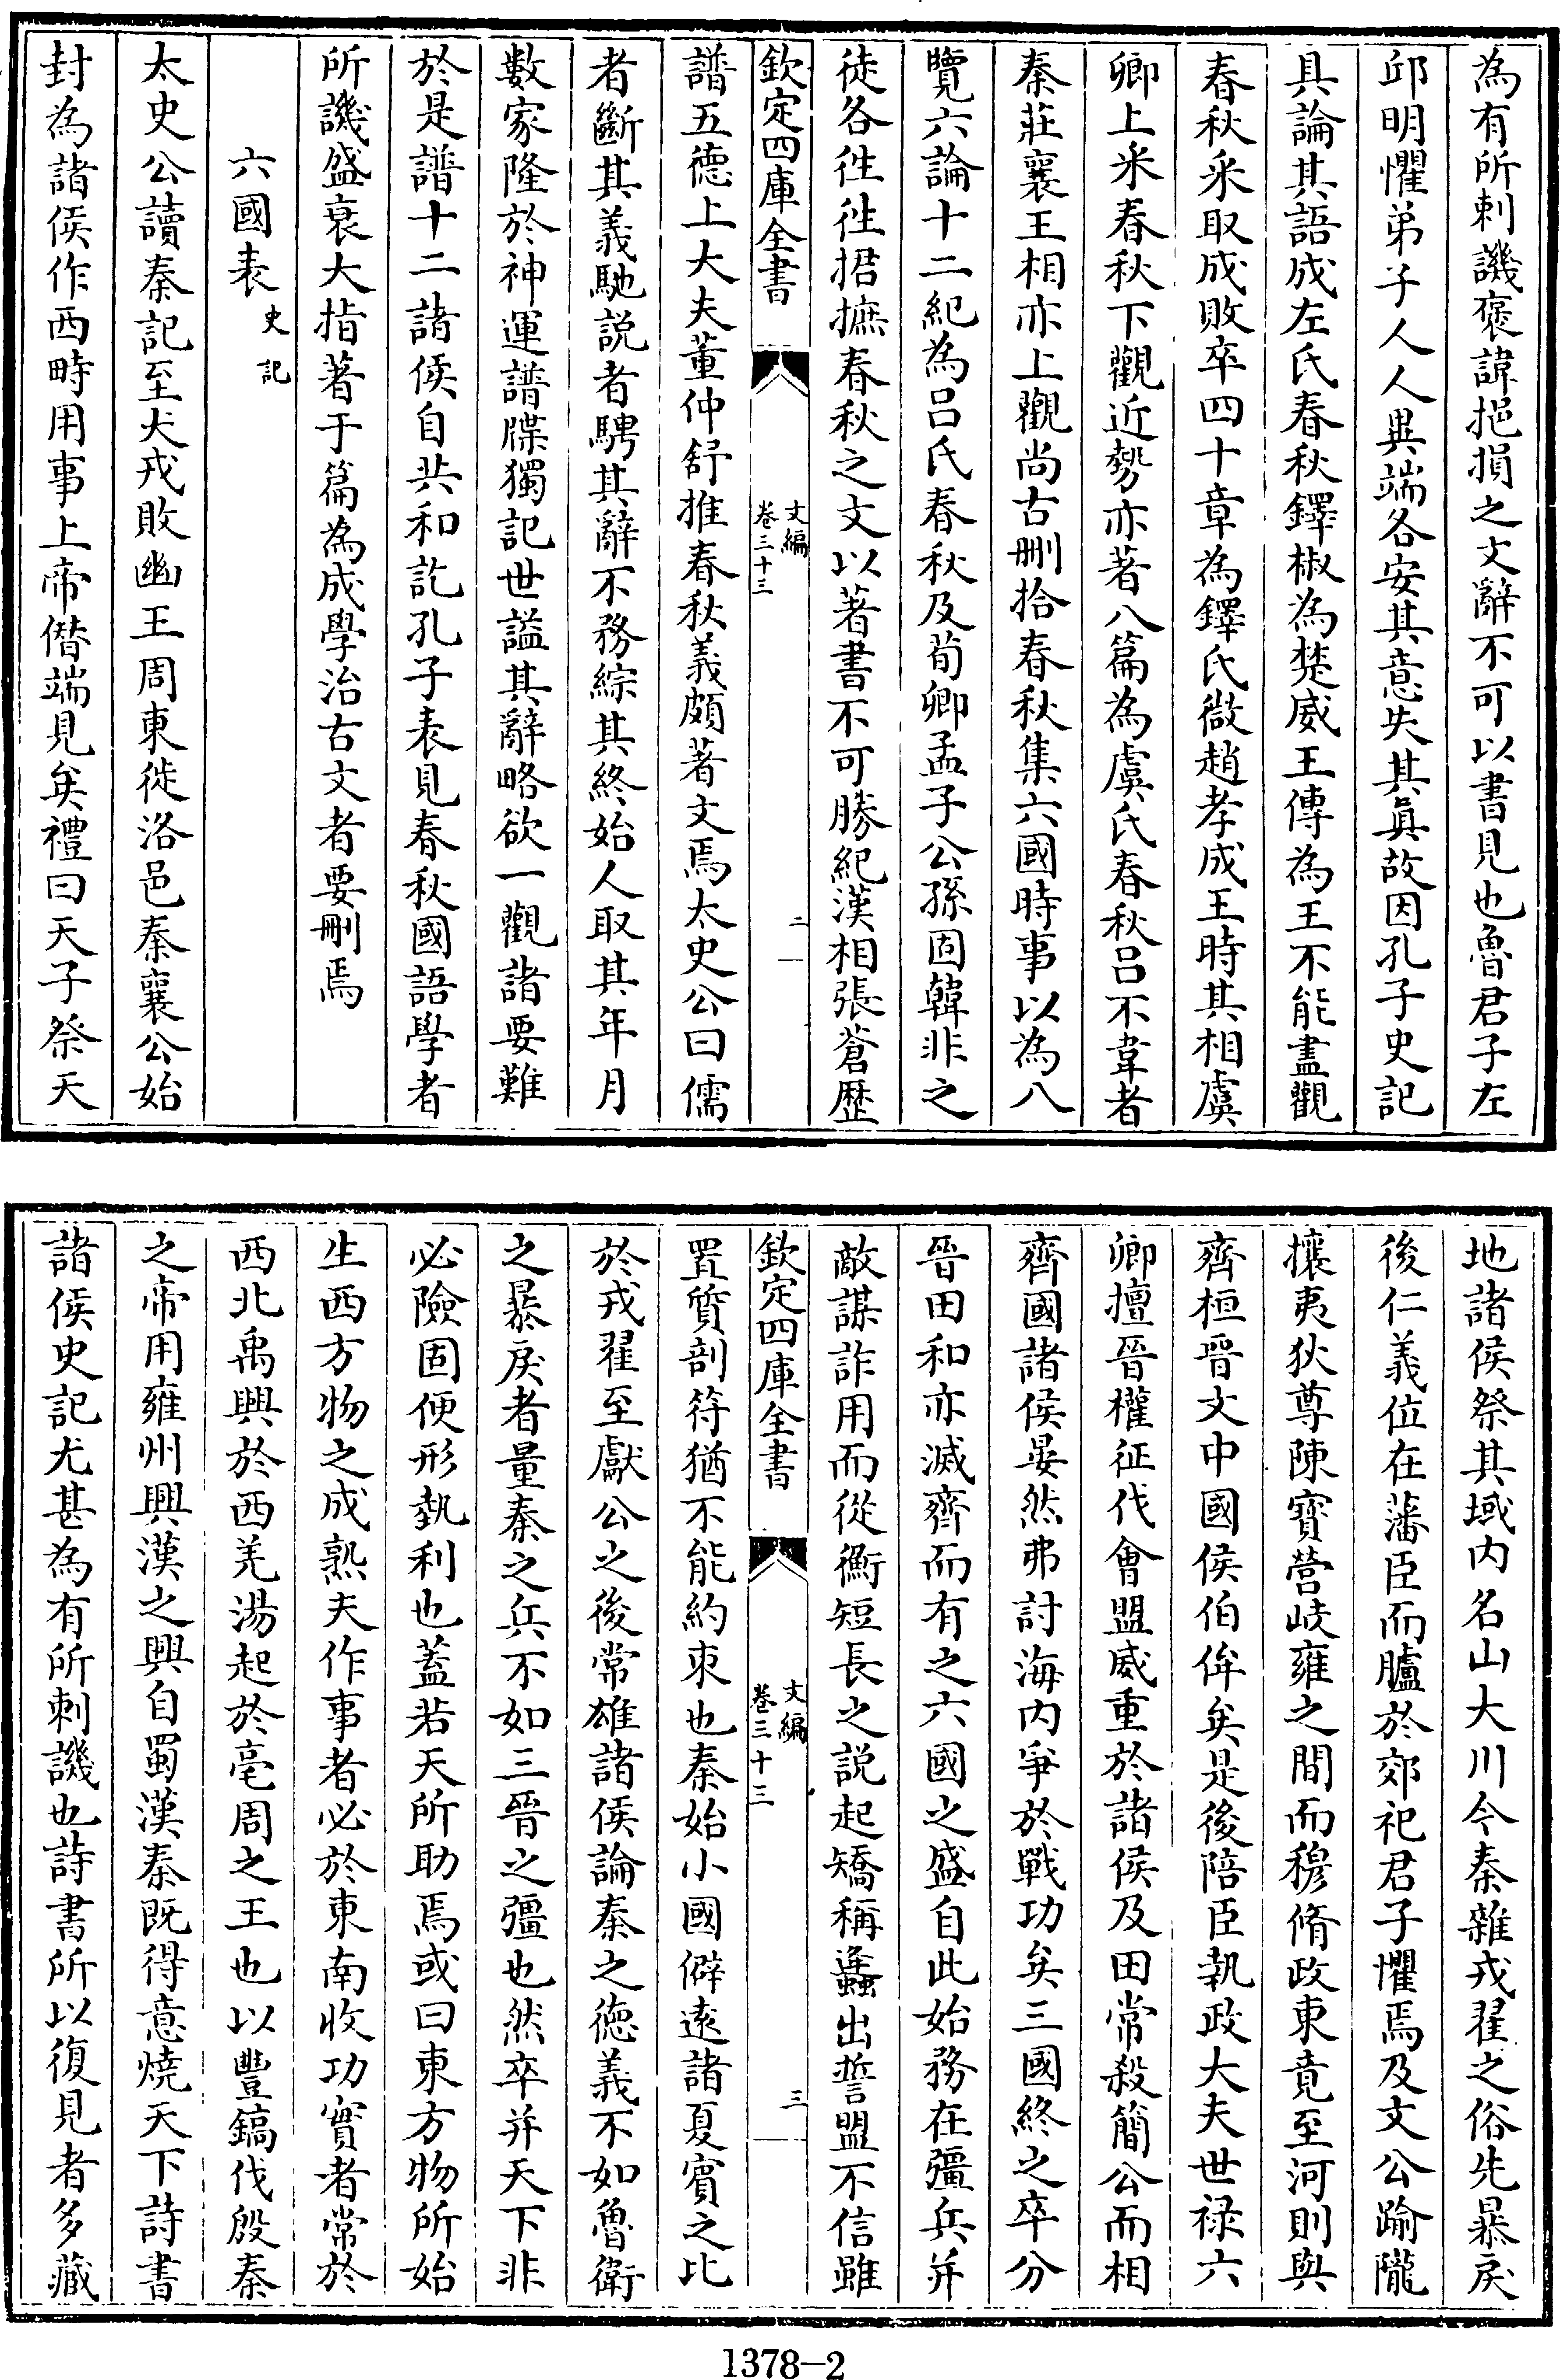 為有所刺譏褒諱挹損之文辭不可以書見也魯君子左
邱明懼弟子人人異端各安其意失其真故因孔子史記
具論其語成左氏春秋鐸椒為楚威王傳為王不能盡觀
春秋采取成敗卒四十章為鐸氏微趙孝成王時其相虞
卿上采春秋下觀近勢亦著八篇為虞氏春秋吕不韋者
秦莊襄王相亦上觀尚古刪拾春秋集六國時事以為八
覽六論十二紀為吕氏春秋及荀卿孟子公孫固韓非之
徒各徃徃捃摭春秋之文以著書不可勝紀漢相張蒼歴
欽定四庫全書
文編
卷三十三
二
譜五德上大夫董仲舒推春秋義頗著文焉太史公曰儒
者斷其義馳説者騁其辭不務綜其終始人取其年月
數家隆於神運譜牒獨記世諡其辭略欲一觀諸要難
於是譜十二諸侯自共和訖孔子表見春秋國語學者
所譏盛衰大指著于篇為成學治古文者要刪焉
六國表史記
太史公讀秦記至犬戎敗幽王周東徙洛邑秦襄公始
封為諸侯作西畤用事上帝僭端見矣禮曰天子祭天
地諸侯祭其域内名山大川今秦雜戎翟之俗先暴戾
後仁義位在藩臣而臚於郊祀君子懼焉及文公踰隴
攘夷狄尊陳寶營岐雍之間而穆脩政東竟至河則與
齊桓晉文中國侯伯侔矣是後陪臣執政大夫世禄六
卿擅晉權征伐會盟威重於諸侯及田常殺簡公而相
齊國諸侯晏然弗討海内爭於戰功矣三國終之卒分
晉田和亦滅齊而有之六國之盛自此始務在彊兵并
敵謀詐用而從衡短長之説起矯稱蠭出誓盟不信雖
欽定四庫全書
文編
卷三十三
三
置質剖符猶不能約束也秦始小國僻逺諸夏賓之比
於戎翟至獻公之後常雄諸侯論秦之德義不如魯衛
之暴戾者量秦之兵不如三晉之彊也然卒并天下非
必險固便形埶利也葢若天所助焉或曰東方物所始
生西方物之成熟夫作事者必於東南收功實者常於
西北禹興於西羌湯起於亳周之王也以豐鎬伐殷秦
之帝用雍州興漢之興自蜀漢秦既得意燒天下詩書
諸侯史記尤甚為有所刺譏也詩書所以復見者多藏
1378-2